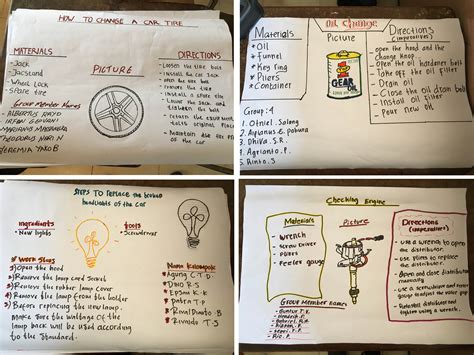 HOW TO CHANGE A CAR TIRE
MATERIALS
- Jack
- Jackstand
- Wheel Lock
- Spare tire
PICTURE
DIRECTIONS
- Loosen the tire bolt
- Install the car Jack
- open the tire bolt
- remove the tire
- Install a spare tire
- Lower the Jack and
tighten the bolt
- return the equipment
to its original place
- Maintain
of the car
Group Member Names
IRFAN GEOVANI
MARIANUS
THEODORUS MARTIN
JEREMIA YAKOB
Oil Change
Materials
* Oil
* Funnel
* Key ring
* Pliers
* Container
Picture
GEAR
OIL
Directions
(imperatives)
- open the hood and the
- Open the oil hardener bolt
- Take off the oil filter
- Drain oil
- Close the oil drain bolt
- Install oil filter
- Pour new oil
Group : 4
1. Otniel, Saleng
3. Dhiva. S.R
4. Agrianto. P.
5. Rinto. S
STEPS TO Replace the broken
headlights of the car
ingredients
- New lights
tools
- Screwdriver
Work Steps
1) Open the hood
2) Remove the lamp card socket
3) Remove the rubber lamp cover
4) Remove the lamp from the holder
5) Before replacing the new lamp.
Make sure the wattage of the
lamp back will be used according
to the standard.
Nama Kelompok
Agung C.T.D
Dino R.S
Epson K.K
Putra T.P
Rivaldo T.S
Checking Engine
Materials
- Wrench
- Screw Driver
- Pliers
- Feeler gauge
Picture
Directions
(imperatives)
- Use a wrench to open
the distributor.
- Use pliers to replace
the distributor.
- Open and close distributor
manually
- Use a screwdriver and feeler
gauge to adjust the valve
gap
Group Member Names
- Guntur P.K